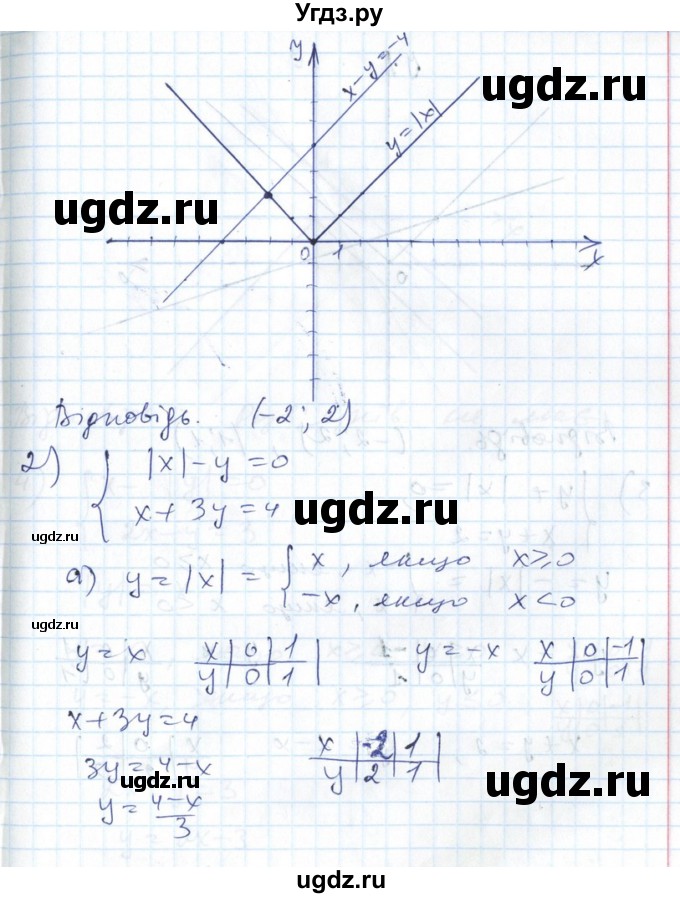 Угдз.ру
y
x-y=-4
y=|x|
ugdz.ru
ugdz.ru
0
1
x
Відповідь. (-2; 2)
2) { |x|-y=0
x+3y=4
ugdz.ru
ugdz.ru
а) y=|x|= { x, якщо x≥0
-x, якщо x<0
ugdz.ru
y=x x|0|1| y=-x x|0|-1|
y|0|1| y|0|1|
x+3y=4
3y=4-x x|-2|1|
y|2|1|
ugdz.ru
ugdz.ru
y=4-x/3
ugdz.ru